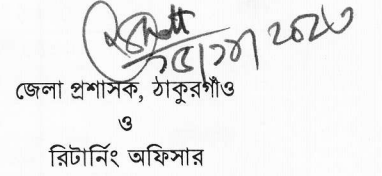 জেলা প্রশাসক, ঠাকুরগাঁও
ও
রিটার্নিং অফিসার